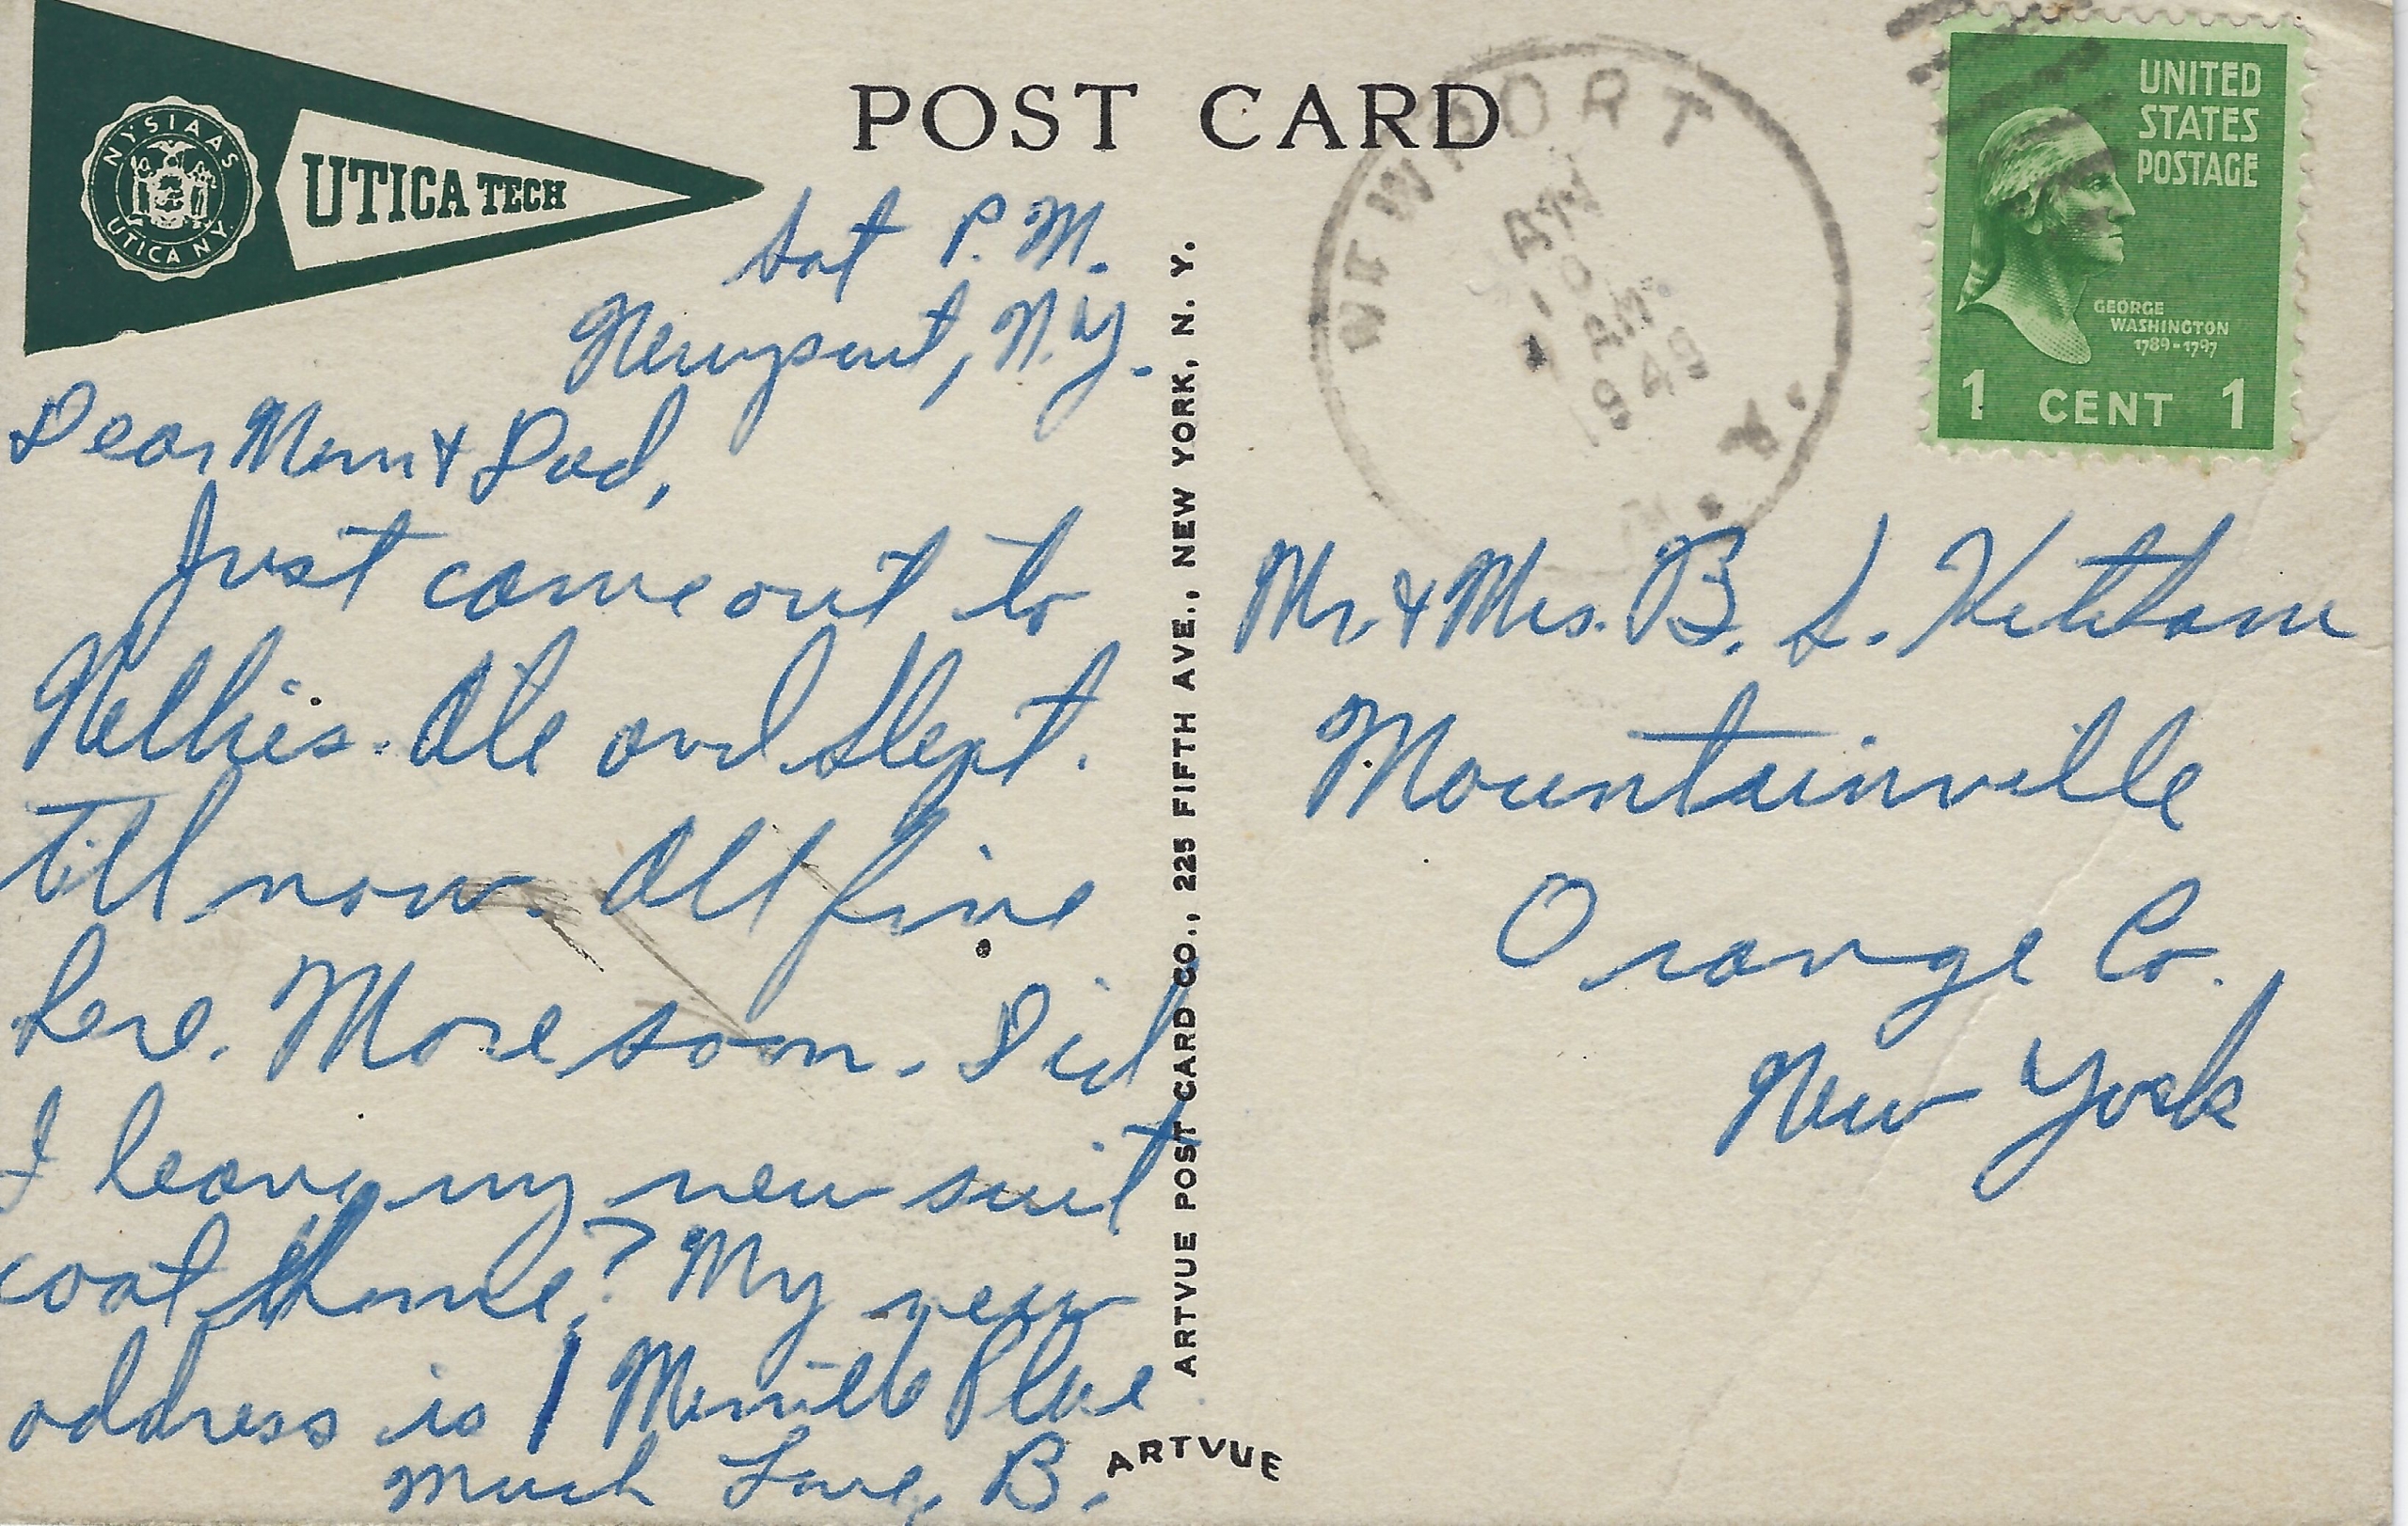 NYSIAAS
UTICA N.Y.
UTICA TECH
POST CARD
Sat P.M.
Newport, N.Y.
Dear Mom & Dad,
Just came out to
Nellies. Ate and slept.
till now. All fine
here. More soon. Did
I leave my new suit
coat home? My new
address is 1 Merrill Place
Much Love, B.
ARTVUE POST CARD CO., 225 FIFTH AVE., NEW YORK, N. Y.
ARTVUE
NEWPORT
10
AM
1949
N.Y.
UNITED
STATES
POSTAGE
GEORGE
WASHINGTON
1789-1797
1 CENT 1
Mr. & Mrs. B. S. Ketcham
Mountainville
Orange Co.
New York